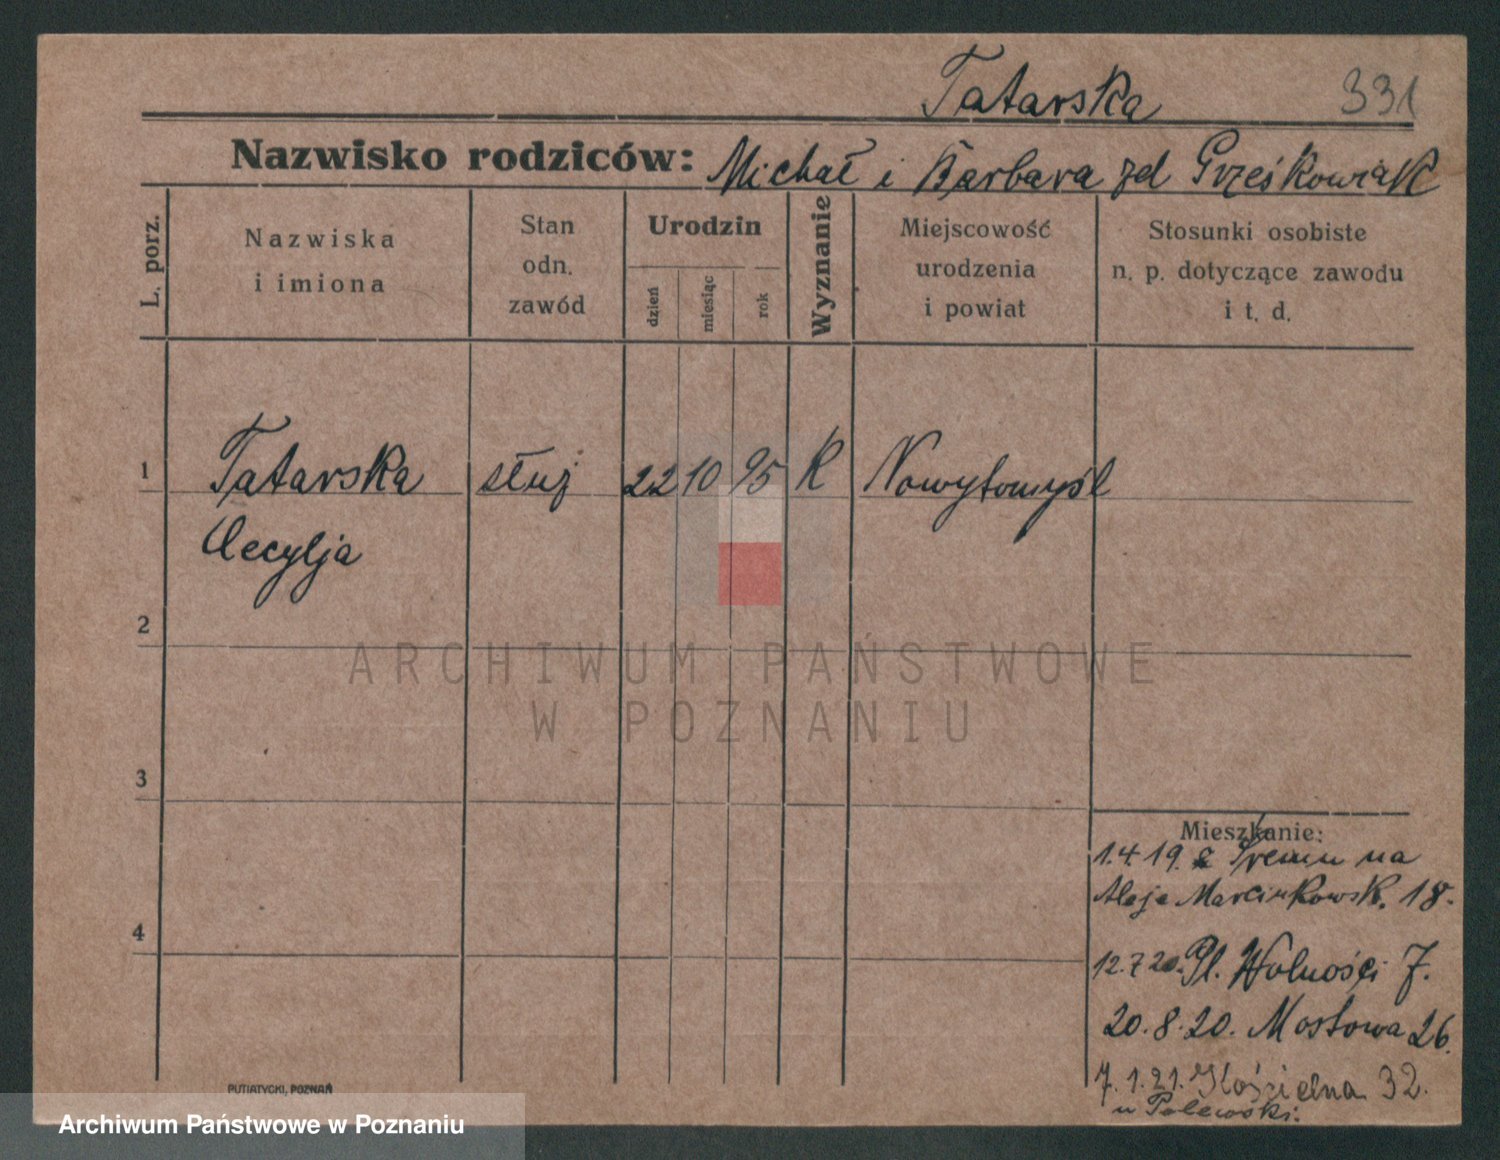 Tatarska 331
Nazwisko rodziców: Michał i Barbara zd Grześkowiak
L. porz.
Nazwiska
i imiona
Stan
odn.
zawód
Urodzin
dzień
miesiąc
rok
Wyznanie
Miejscowość
urodzenia
i powiat
Stosunki osobiste
n. p. dotyczące zawodu
i t. d.
1 Tatarska służ 22 10 95 K Nowytomyśl
Cecylja
2
3
4
ARCHIWUM PAŃSTWOWE
W POZNANIU
Mieszkanie:
1.4.19. z Śremu na
Aleje Marcinkowsk. 18.
12.7 20. Pl. Wolności 7.
20.8.20. Mostowa 26.
7.1.21. Kościelna 32.
u
PUTIATYCKI, POZNAŃ
Archiwum Państwowe w Poznaniu